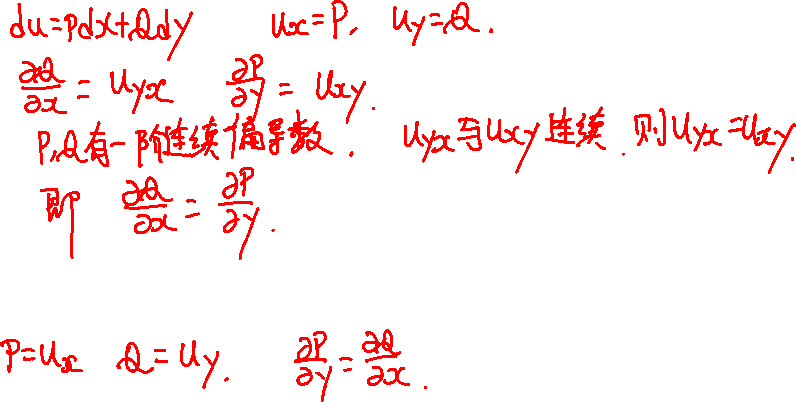 du=Pdx+Qdy ux=P, uy=Q.
∂Q/∂x = uyx ∂P/∂y = uxy.
P,Q有一阶连续偏导数. uyx与uxy连续.则uyx=uxy.
即 ∂Q/∂x = ∂P/∂y.
P=ux Q=uy. ∂P/∂y=∂Q/∂x.